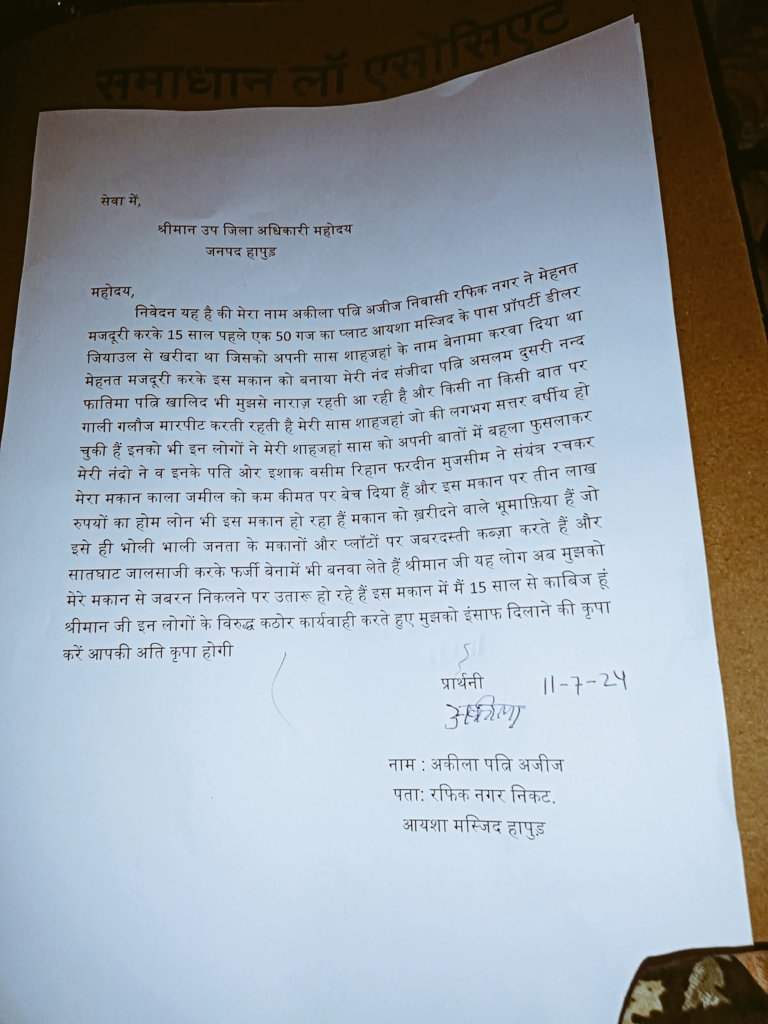 समाधान लॉ एसोसिएट
सेवा में,
श्रीमान उप जिला अधिकारी महोदय
जनपद हापुड़
महोदय,
निवेदन यह है की मेरा नाम अकीला पत्नि अजीज निवासी रफिक नगर ने मेहनत
मजदूरी करके 15 साल पहले एक 50 गज का प्लाट आयशा मस्जिद के पास प्रॉपर्टी डीलर
जियाउल से खरीदा था जिसको अपनी सास शाहजहां के नाम बेनामा करवा दिया था
मेहनत मजदूरी करके इस मकान को बनाया मेरी नंद संजीदा पत्नि असलम दुसरी नन्द
फातिमा पत्नि खालिद भी मुझसे नाराज़ रहती आ रही है और किसी ना किसी बात पर
गाली गलौज मारपीट करती रहती है मेरी सास शाहजहां जो की लगभग सत्तर वर्षीय हो
चुकी हैं इनको भी इन लोगों ने मेरी शाहजहां सास को अपनी बातों में बहला फुसलाकर
मेरी नंदो ने व इनके पति ओर इशाक वसीम रिहान फरदीन मुजसीम ने संयंत्र रचकर
मेरा मकान काला जमील को कम कीमत पर बेच दिया हैं और इस मकान पर तीन लाख
रुपयों का होम लोन भी इस मकान हो रहा हैं मकान को ख़रीदने वाले भूमाफ़िया हैं जो
इसे ही भोली भाली जनता के मकानों और प्लॉटों पर जबरदस्ती कब्ज़ा करते हैं और
सातघाट जालसाजी करके फर्जी बेनामें भी बनवा लेते हैं श्रीमान जी यह लोग अब मुझको
मेरे मकान से जबरन निकलने पर उतारू हो रहे हैं इस मकान में मैं 15 साल से काबिज हूं
श्रीमान जी इन लोगों के विरुद्ध कठोर कार्यवाही करते हुए मुझको इंसाफ दिलाने की कृपा
करें आपकी अति कृपा होगी
प्रार्थनी 11-7-24
अकीला
नाम : अकीला पत्नि अजीज
पता: रफिक नगर निकट.
आयशा मस्जिद हापुड़